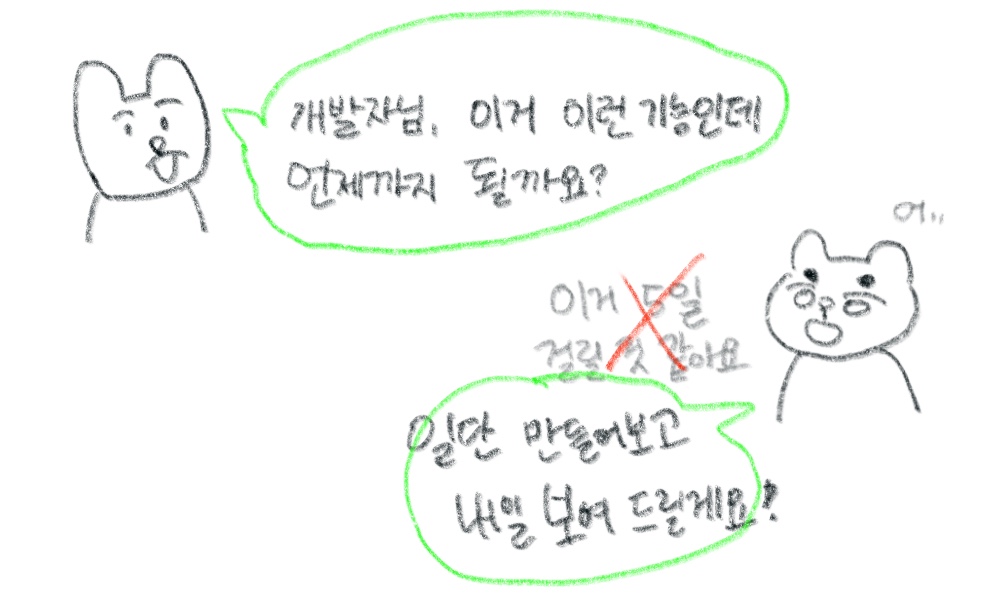 개발자님, 이거 이런 기능인데
언제까지 될까요?
어..
이거 5일
걸릴 것 같아요
일단 만들어보고
내일 보여 드릴게요?